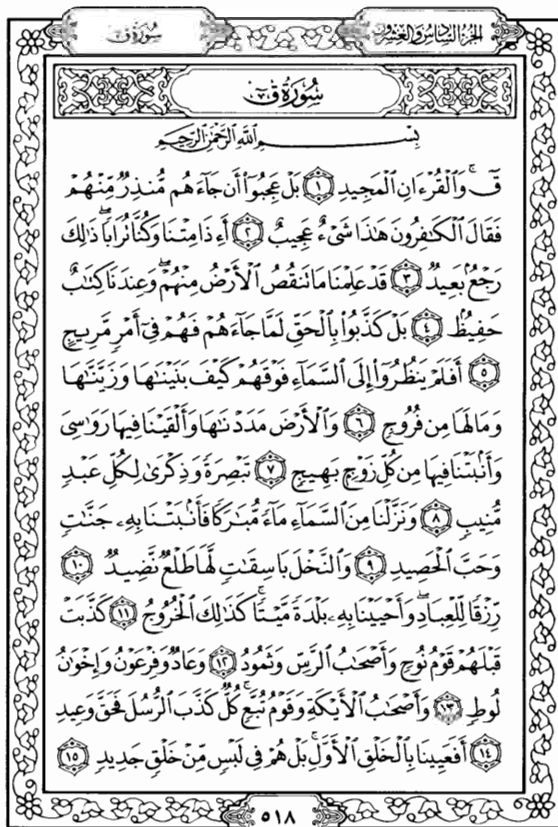 سُورَةُ ق
الجُزءُ السَّادِسُ وَالعِشْرُونَ
سُورَةُ ق
بِسْمِ ٱللَّهِ ٱلرَّحْمَٰنِ ٱلرَّحِيمِ
قٓ ۚ وَٱلْقُرْءَانِ ٱلْمَجِيدِ ﴿١﴾ بَلْ عَجِبُوٓا۟ أَن جَآءَهُم مُّنذِرٌ مِّنْهُمْ
فَقَالَ ٱلْكَٰفِرُونَ هَٰذَا شَىْءٌ عَجِيبٌ ﴿٢﴾ أَءِذَا مِتْنَا وَكُنَّا تُرَابًا ۖ ذَٰلِكَ
رَجْعٌۢ بَعِيدٌ ﴿٣﴾ قَدْ عَلِمْنَا مَا تَنقُصُ ٱلْأَرْضُ مِنْهُمْ ۖ وَعِندَنَا كِتَٰبٌ
حَفِيظٌۢ ﴿٤﴾ بَلْ كَذَّبُوا۟ بِٱلْحَقِّ لَمَّا جَآءَهُمْ فَهُمْ فِىٓ أَمْرٍ مَّرِيجٍ
﴿٥﴾ أَفَلَمْ يَنظُرُوٓا۟ إِلَى ٱلسَّمَآءِ فَوْقَهُمْ كَيْفَ بَنَيْنَٰهَا وَزَيَّنَّٰهَا
وَمَا لَهَا مِن فُرُوجٍ ﴿٦﴾ وَٱلْأَرْضَ مَدَدْنَٰهَا وَأَلْقَيْنَا فِيهَا رَوَٰسِىَ
وَأَنۢبَتْنَا فِيهَا مِن كُلِّ زَوْجٍۭ بَهِيجٍ ﴿٧﴾ تَبْصِرَةً وَذِكْرَىٰ لِكُلِّ عَبْدٍ
مُّنِيبٍ ﴿٨﴾ وَنَزَّلْنَا مِنَ ٱلسَّمَآءِ مَآءً مُّبَٰرَكًا فَأَنۢبَتْنَا بِهِۦ جَنَّٰتٍ
وَحَبَّ ٱلْحَصِيدِ ﴿٩﴾ وَٱلنَّخْلَ بَاسِقَٰتٍ لَّهَا طَلْعٌ نَّضِيدٌ ﴿١٠﴾
رِّزْقًا لِّلْعِبَادِ ۖ وَأَحْيَيْنَا بِهِۦ بَلْدَةً مَّيْتًا ۚ كَذَٰلِكَ ٱلْخُرُوجُ ﴿١١﴾ كَذَّبَتْ
قَبْلَهُمْ قَوْمُ نُوحٍ وَأَصْحَٰبُ ٱلرَّسِّ وَثَمُودُ ﴿١٢﴾ وَعَادٌ وَفِرْعَوْنُ وَإِخْوَٰنُ
لُوطٍ ﴿١٣﴾ وَأَصْحَٰبُ ٱلْأَيْكَةِ وَقَوْمُ تُبَّعٍ ۚ كُلٌّ كَذَّبَ ٱلرُّسُلَ فَحَقَّ وَعِيدِ
﴿١٤﴾ أَفَعَيِينَا بِٱلْخَلْقِ ٱلْأَوَّلِ ۚ بَلْ هُمْ فِى لَبْسٍ مِّنْ خَلْقٍ جَدِيدٍ ﴿١٥﴾
٥١٨